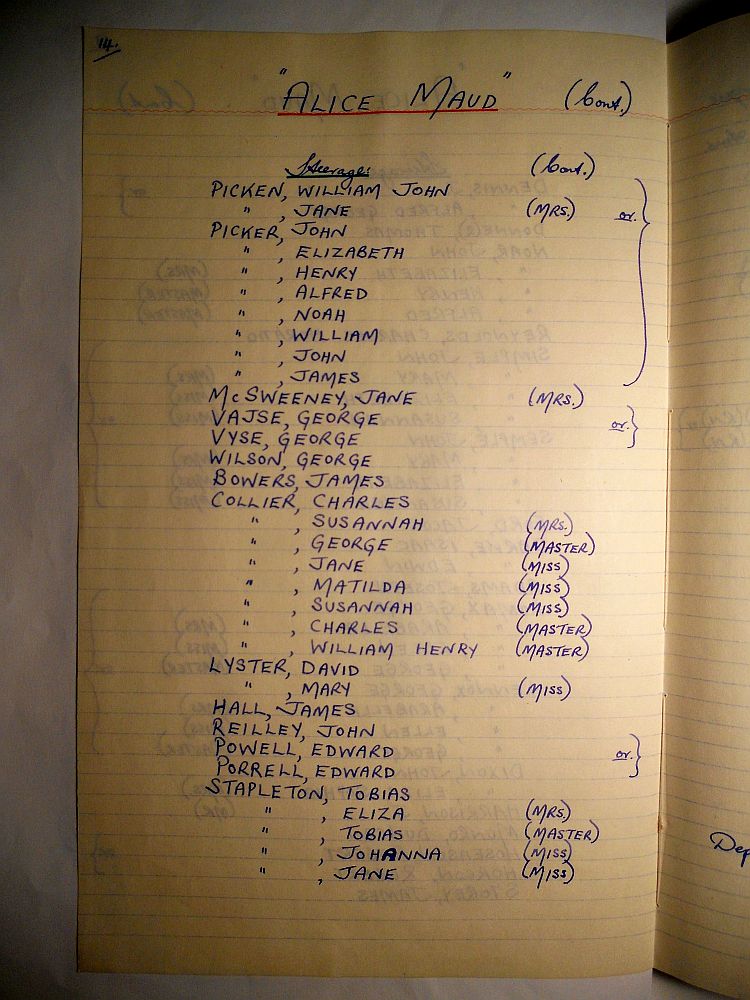 14.
"ALICE MAUD" (Cont.)
Steerage: (Cont.)
PICKEN, WILLIAM JOHN
" , JANE (MRS.) or.
PICKER, JOHN
" , ELIZABETH
" , HENRY
" , ALFRED
" , NOAH
" , WILLIAM
" , JOHN
" , JAMES
McSWEENEY, JANE (MRS.)
VAJSE, GEORGE or.
VYSE, GEORGE
WILSON, GEORGE
BOWERS, JAMES
COLLIER, CHARLES
" , SUSANNAH (MRS.)
" , GEORGE (MASTER)
" , JANE (MISS)
" , MATILDA (MISS)
" , SUSANNAH (MISS)
" , CHARLES (MASTER)
" , WILLIAM HENRY (MASTER)
LYSTER, DAVID
" , MARY (MISS)
HALL, JAMES
REILLEY, JOHN
POWELL, EDWARD or.
PORRELL, EDWARD
STAPLETON, TOBIAS
" , ELIZA (MRS.)
" , TOBIAS (MASTER)
" , JOHANNA (MISS)
" , JANE (MISS)
Dep